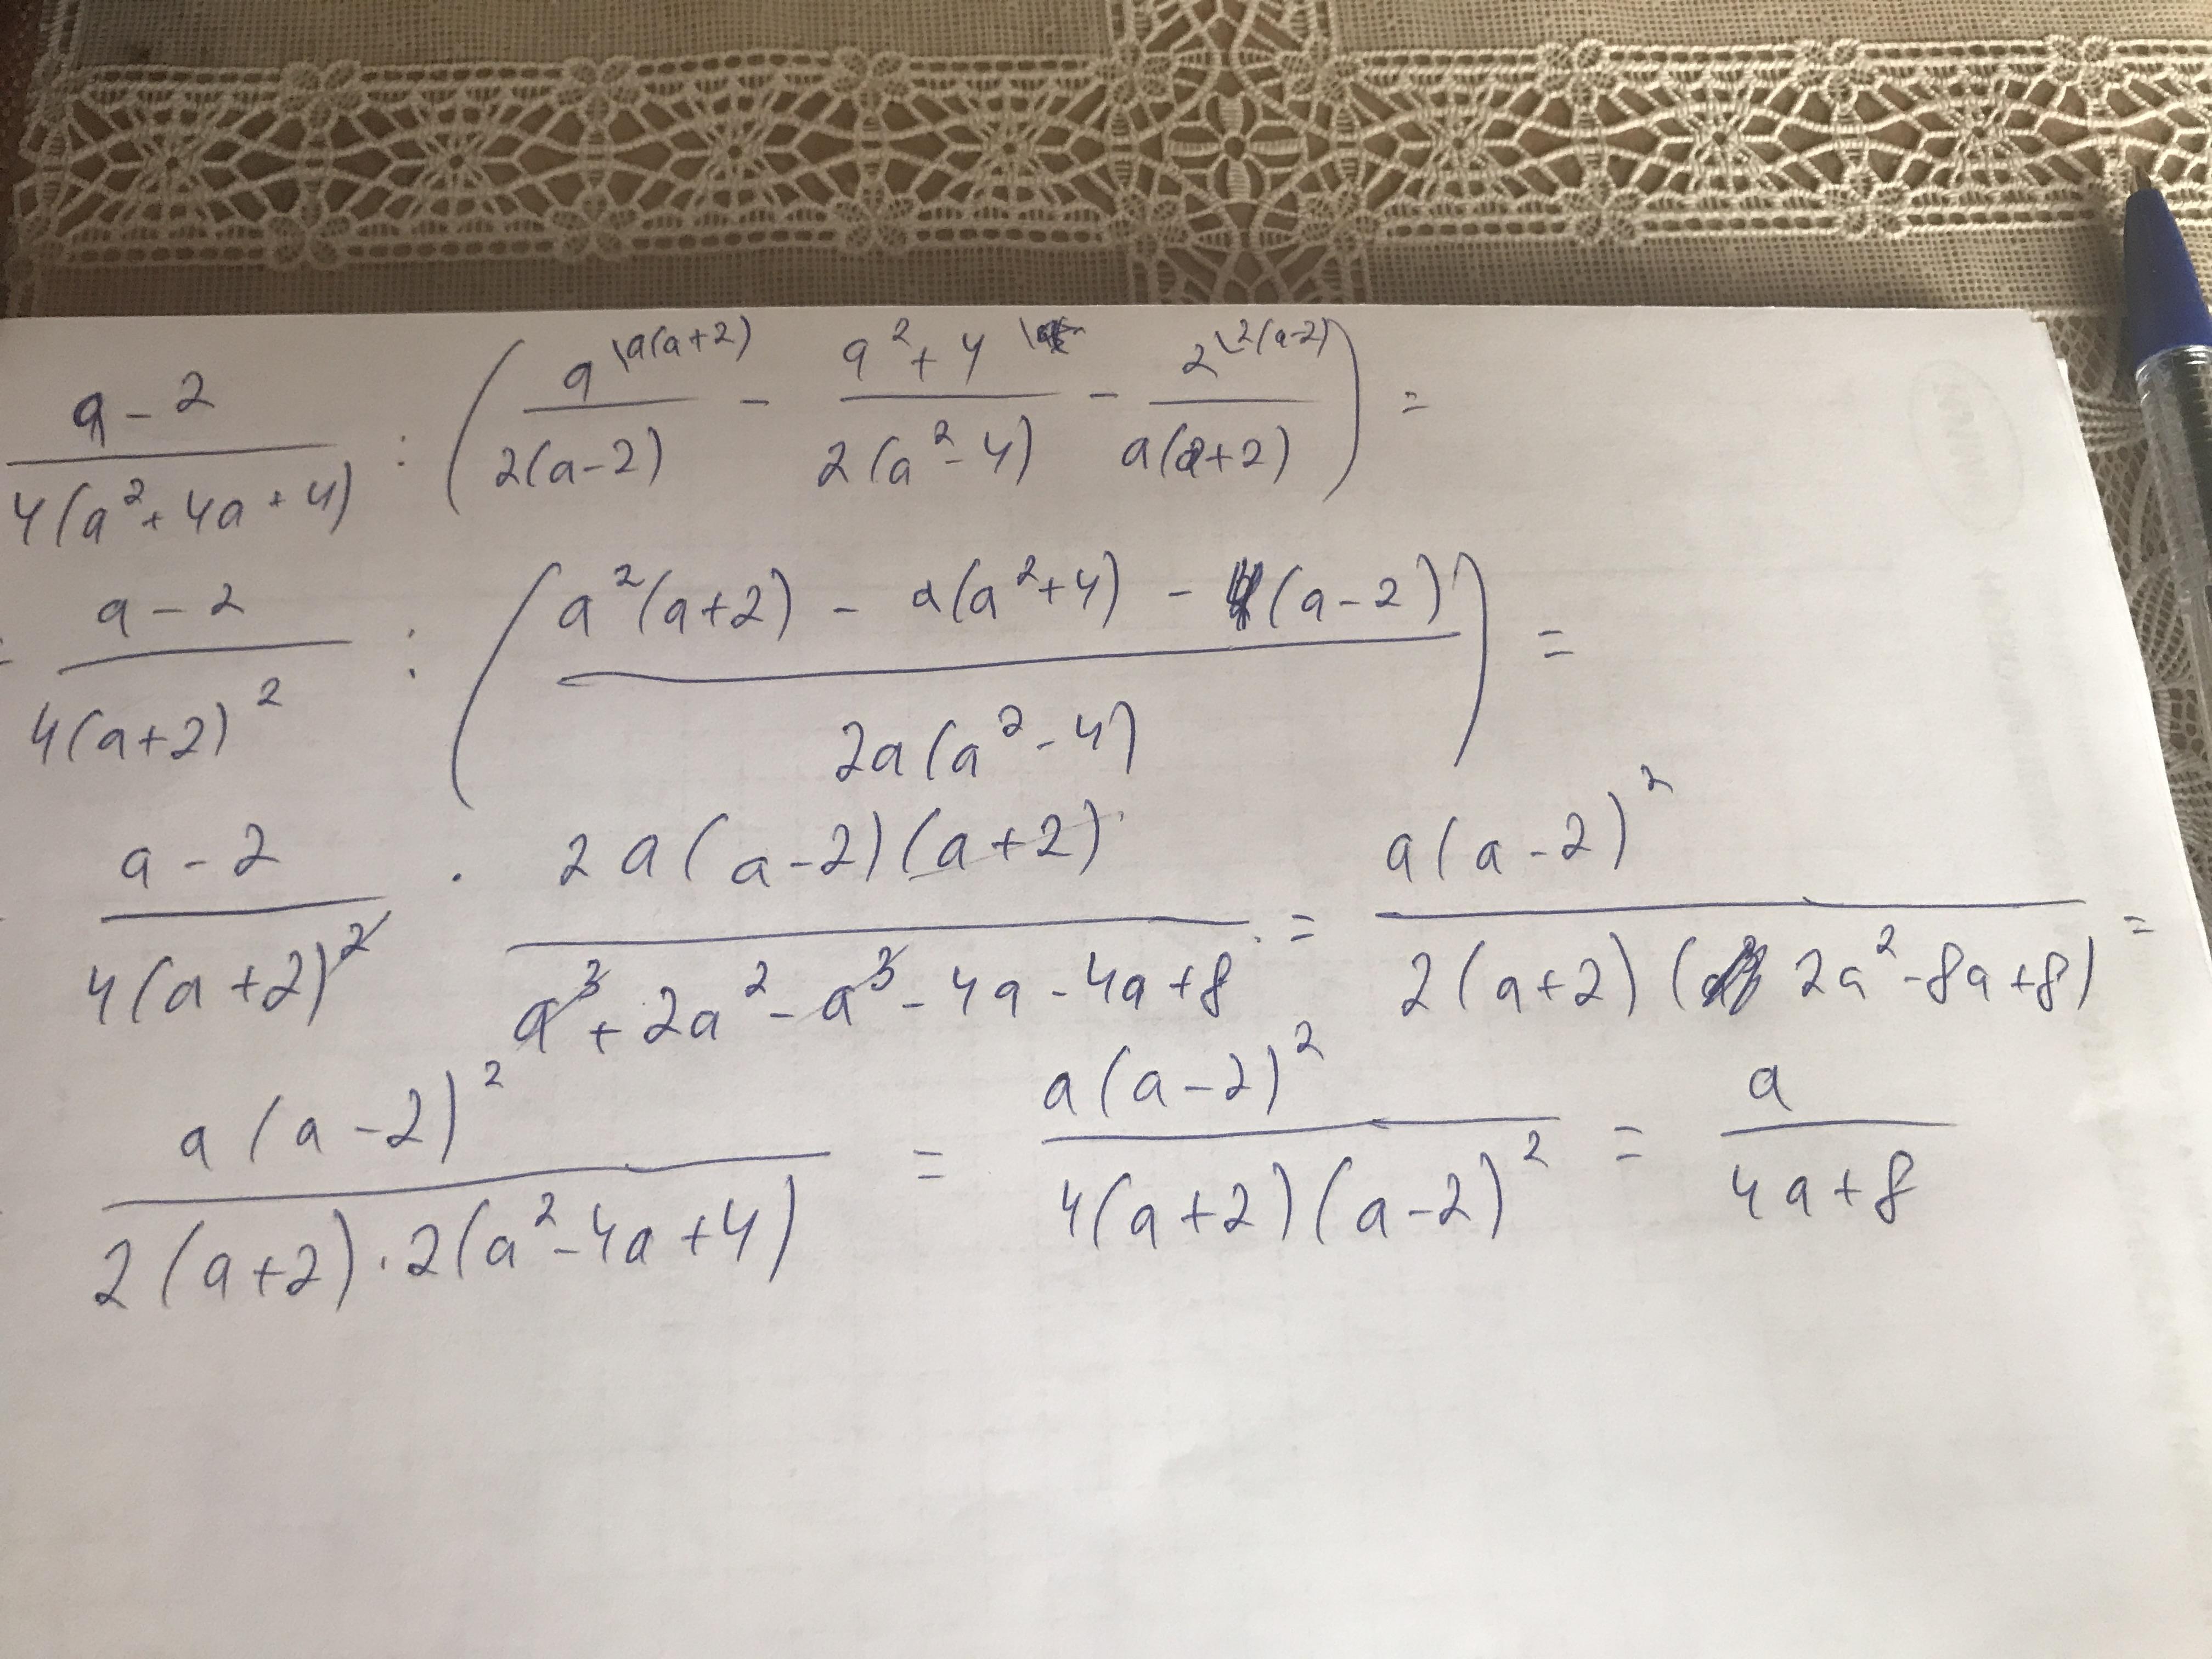 a-2/4(a²+4a+4) : (a\a(a+2)/2(a-2) - a²+4/2(a²-4) - 2\2(a-2)/a(a+2)) =
= a-2/4(a+2)² : (a²(a+2) - a(a²+4) - 4(a-2)/2a(a²-4)) =
a-2/4(a+2)² · 2a(a-2)(a+2)/a³+2a²-a³-4a-4a+8 = a(a-2)²/2(a+2)(2a²-8a+8) =
a(a-2)²/2(a+2)·2(a²-4a+4) = a(a-2)²/4(a+2)(a-2)² = a/4a+8